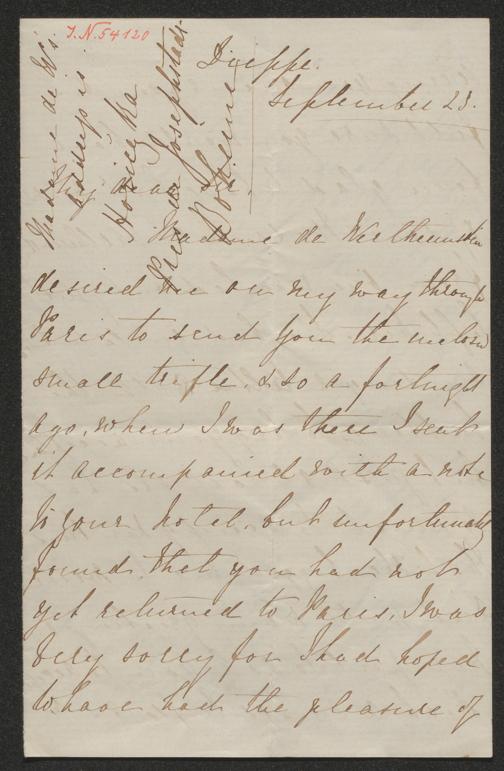 I.N. 54120
Madame de W's.
address is
Horzeghka
Près de Josephstadt
Boheme
Dieppe.
September 23.
My dear Sir,
Madame de Wertheimstein
desired me on my way through
Paris to send you the enclosed
small trifle, & so a fortnight
ago, when I was there I sent
it accompanied with a note
to your hotel, but unfortunately
found that you had not
yet returned to Paris, I was
very sorry for I had hoped
to have had the pleasure of